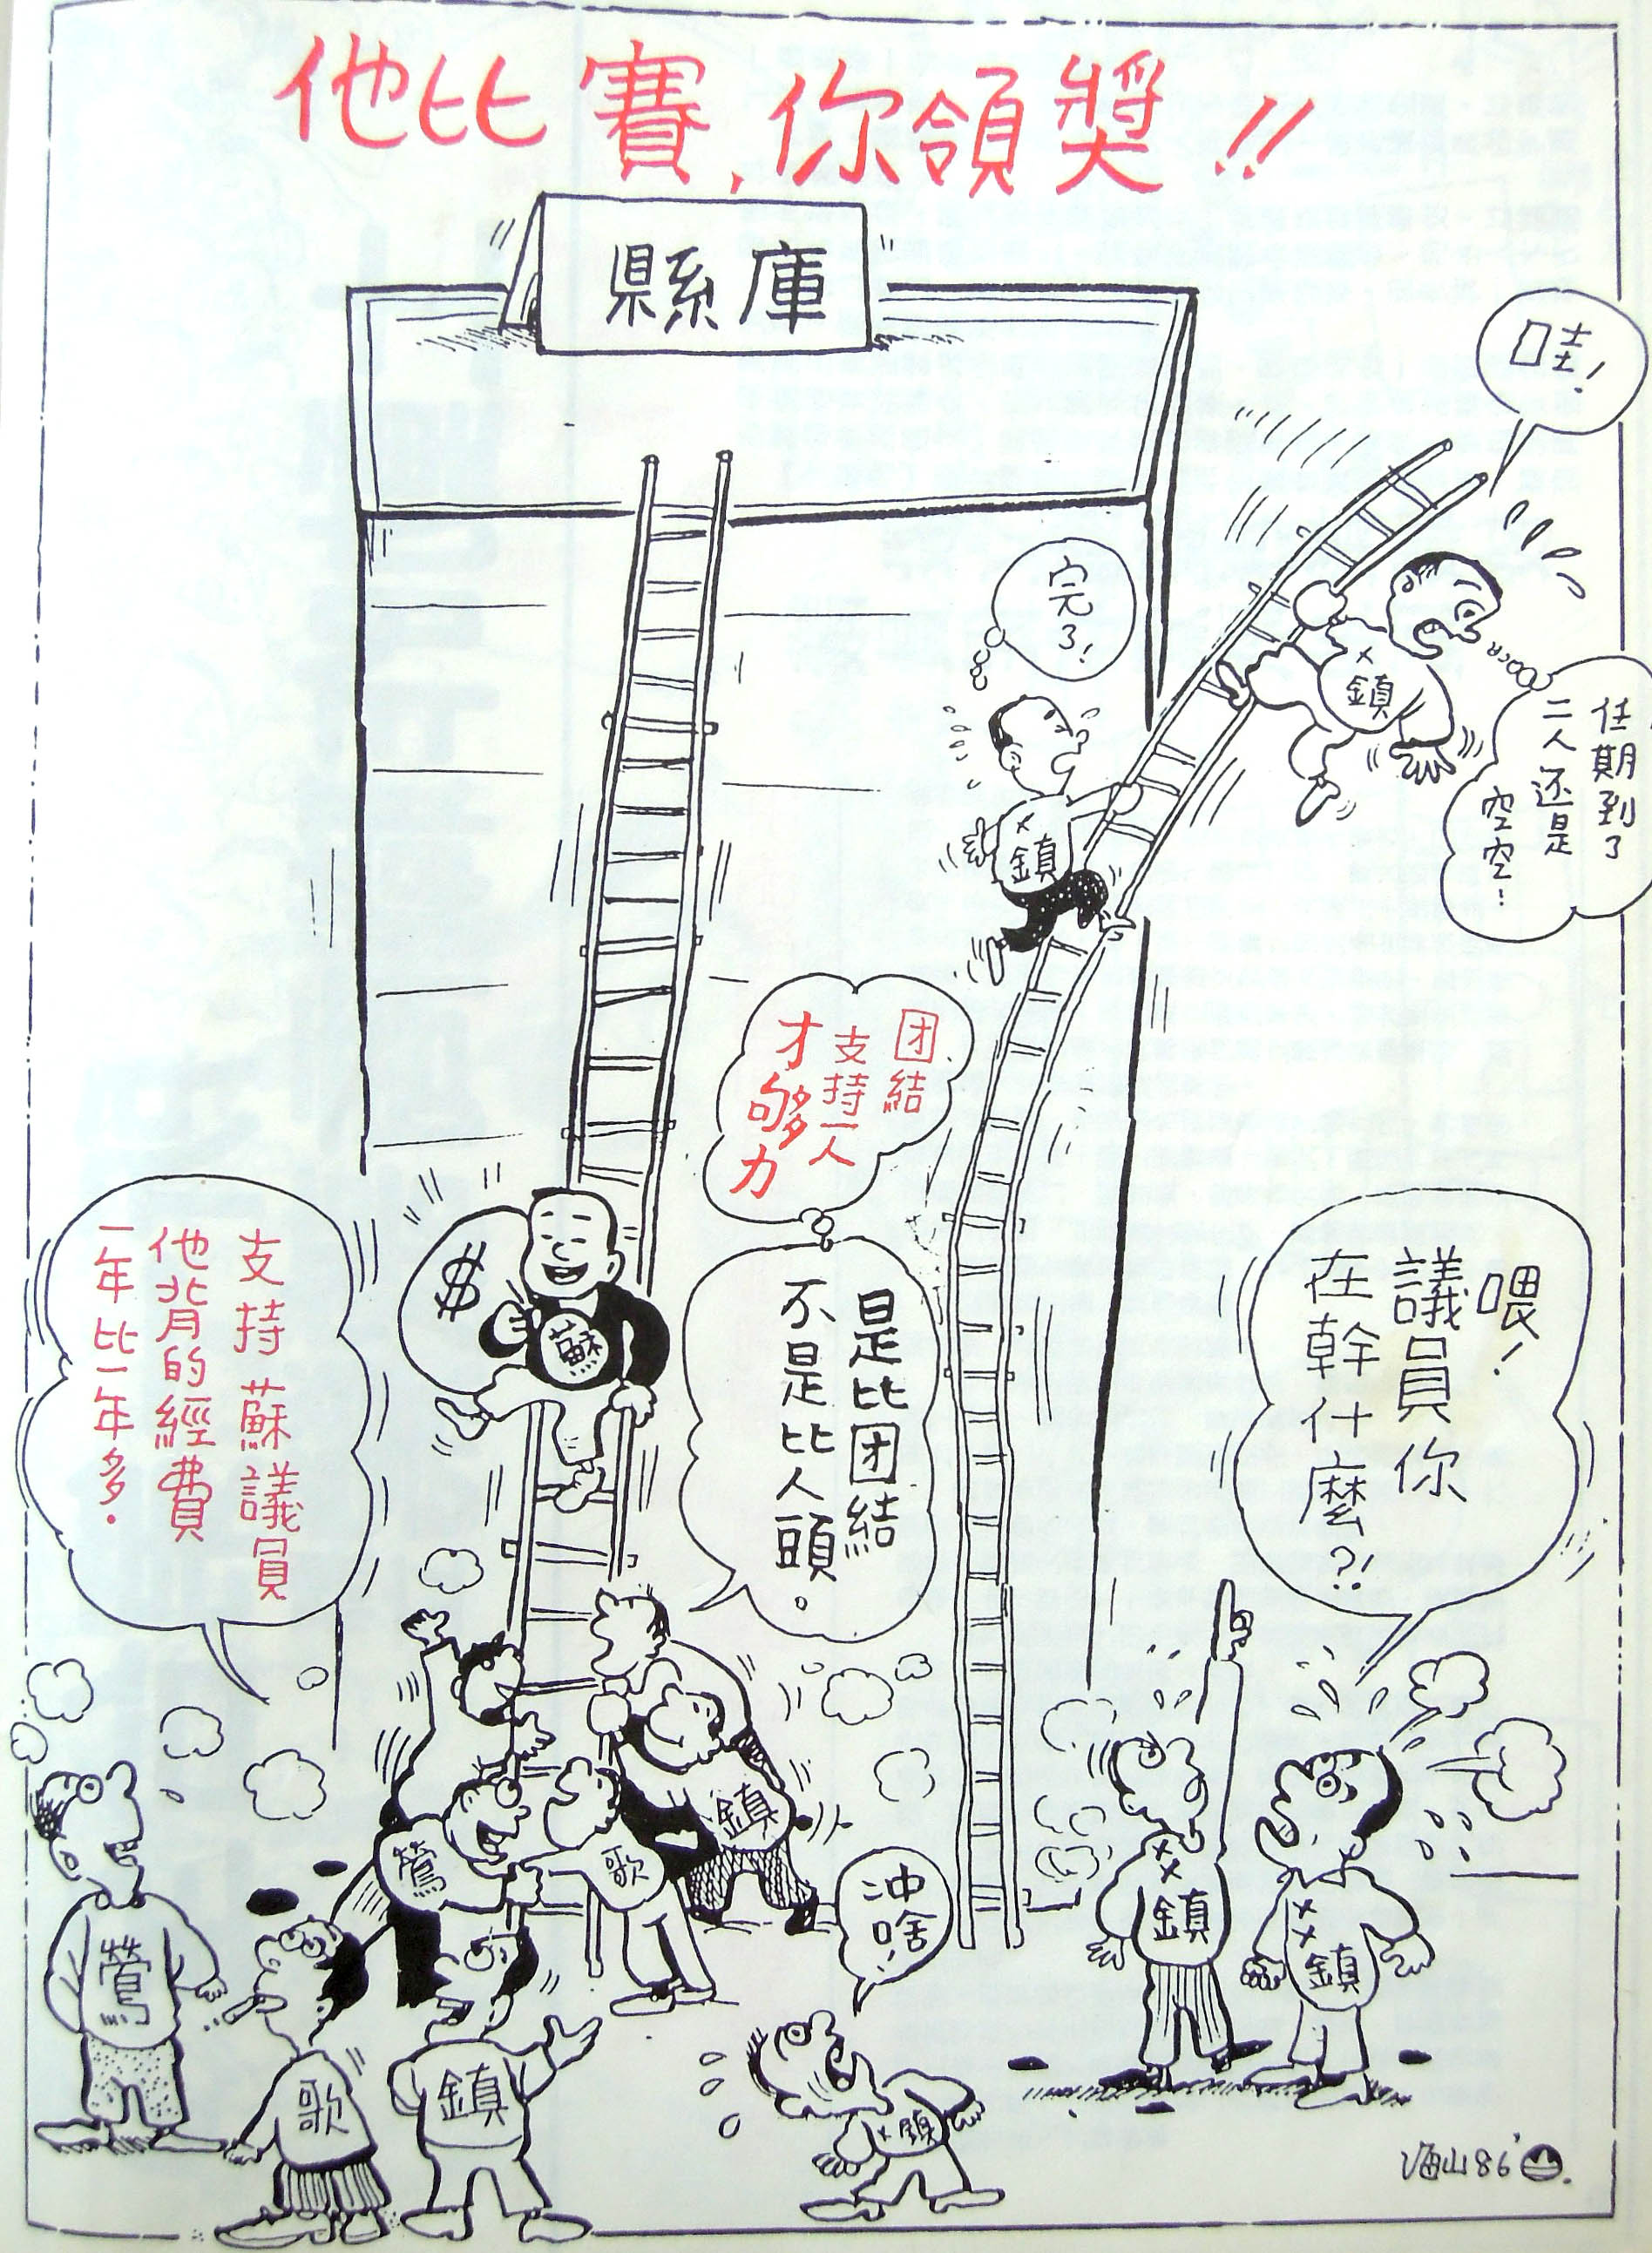 他比賽,你領獎!!
縣庫
哇!
任期到了
二人还是
空空!
完了!
鎮
鎮
団結
支持一人
才够力
是比団結
不是比人頭。
支持蘇議員
他背的經費
一年比一年多.
$
蘇
喂!
議員你
在幹什麼?!
鶯
歌
鎮
沖啥!
鶯
歌
鎮
××鎮
××鎮
×鎮
海山86'